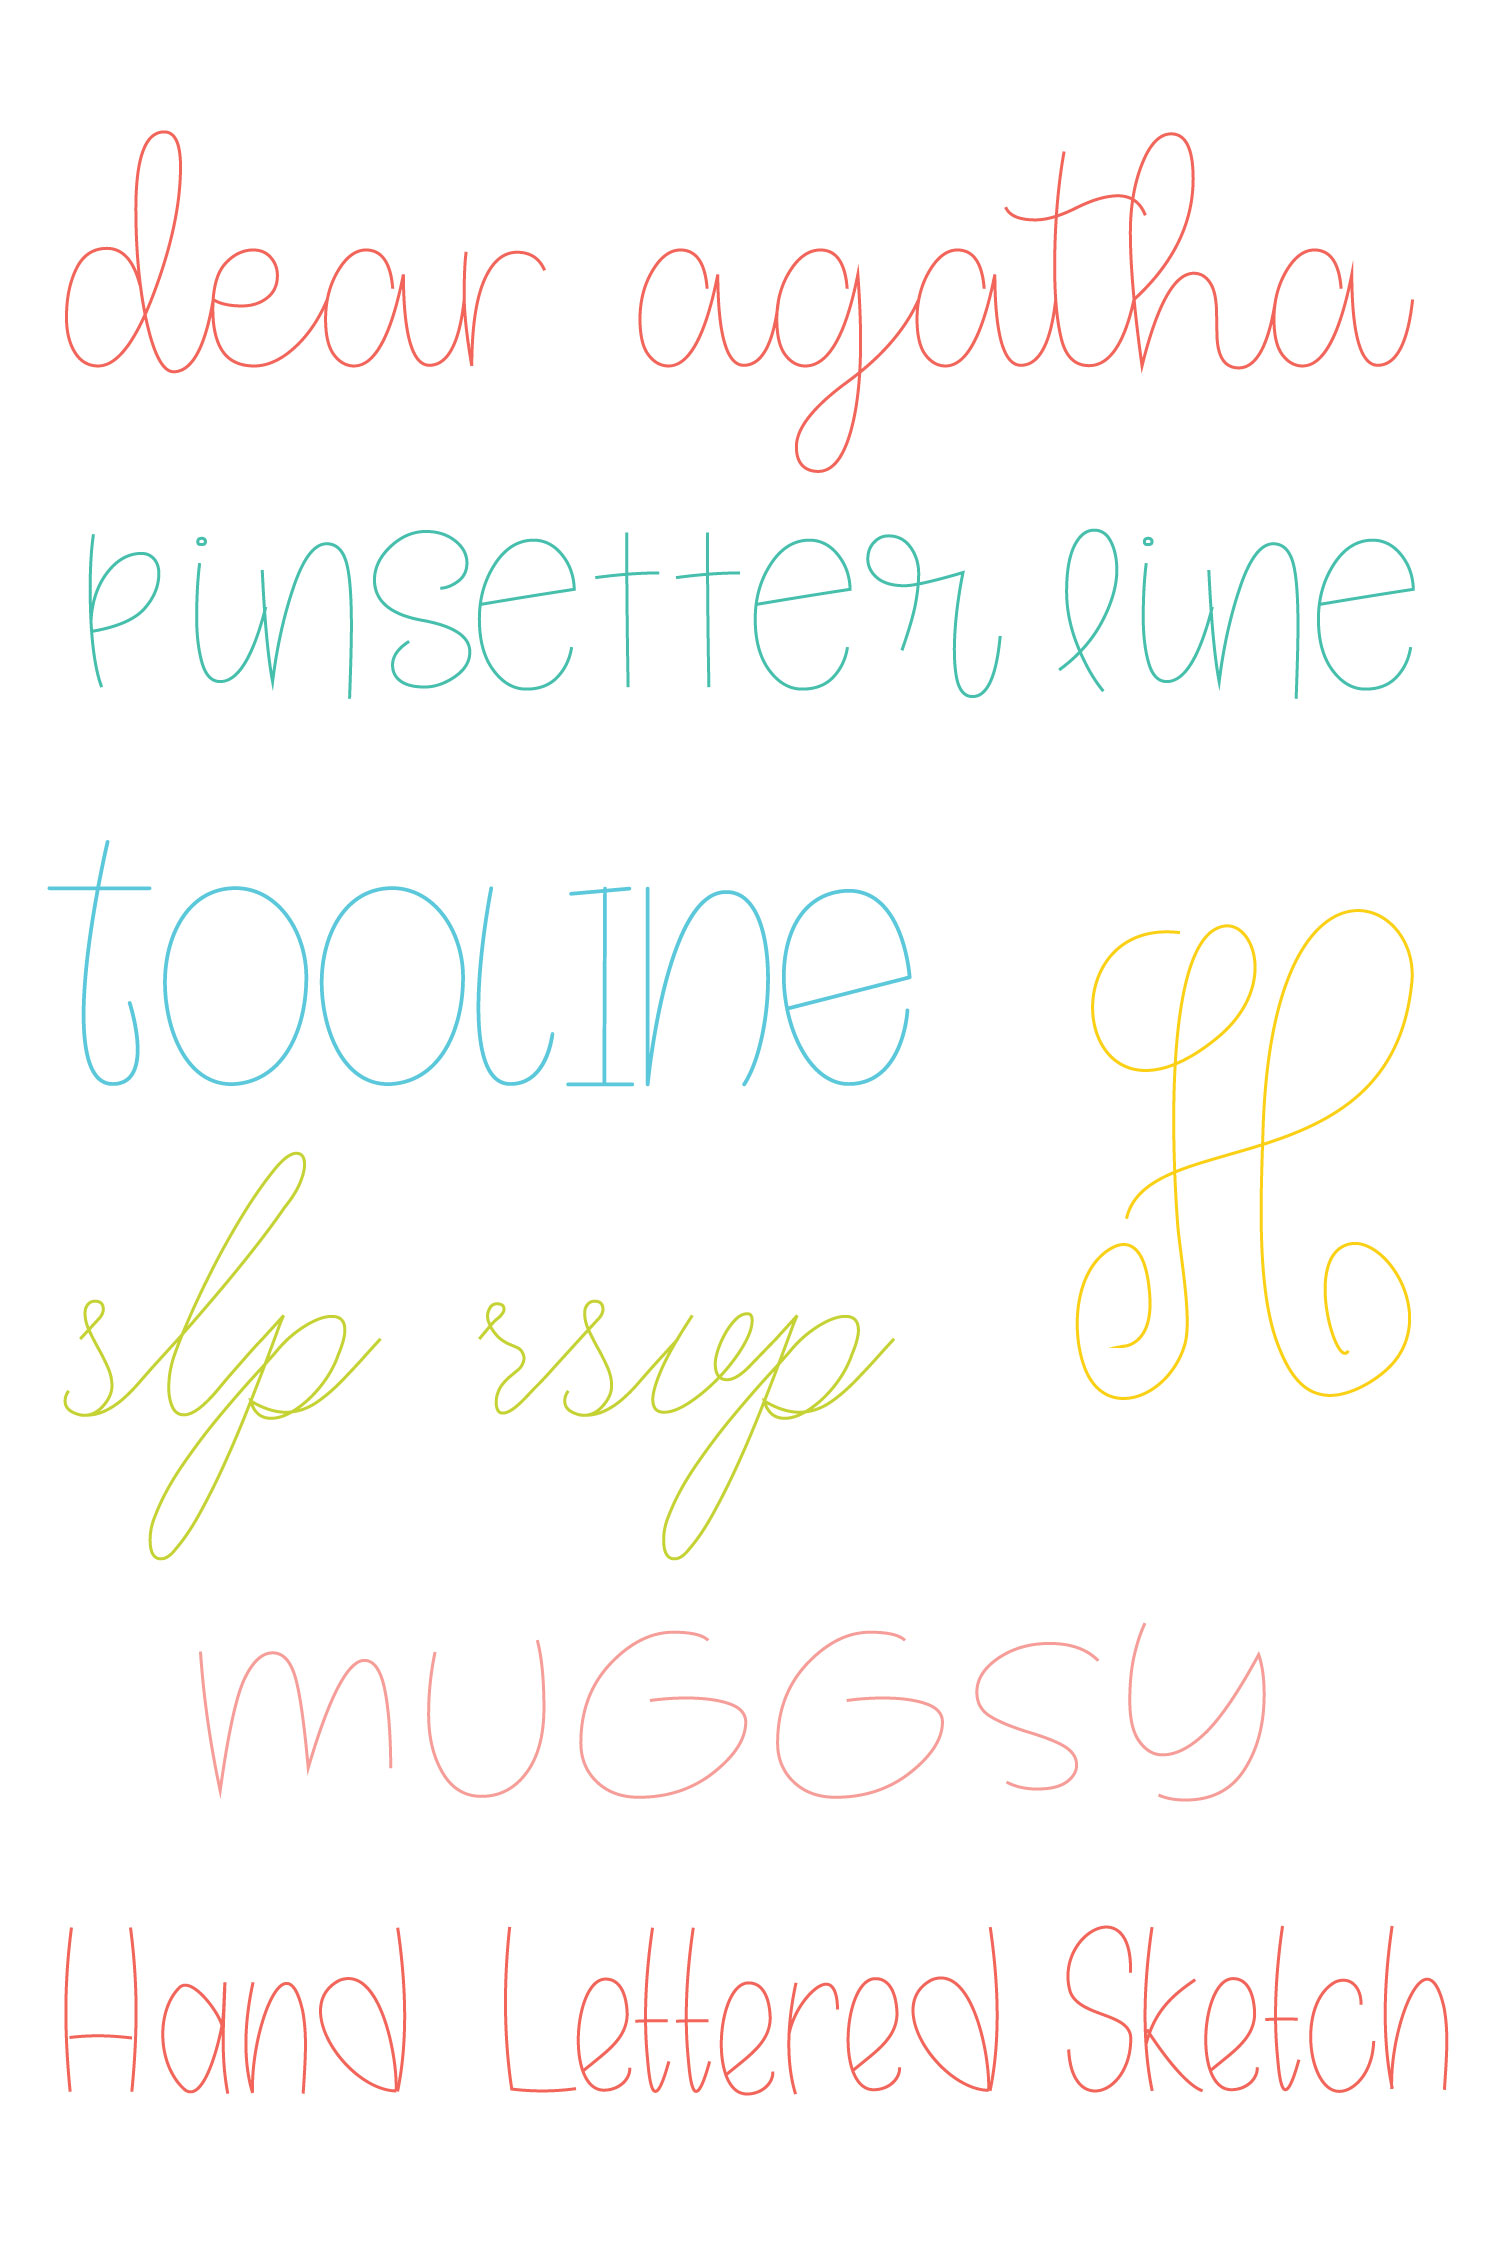 dear agatha
Pinsetter line
toolIne
H
slp rsvp
mUGGSy
Hand Lettered Sketch